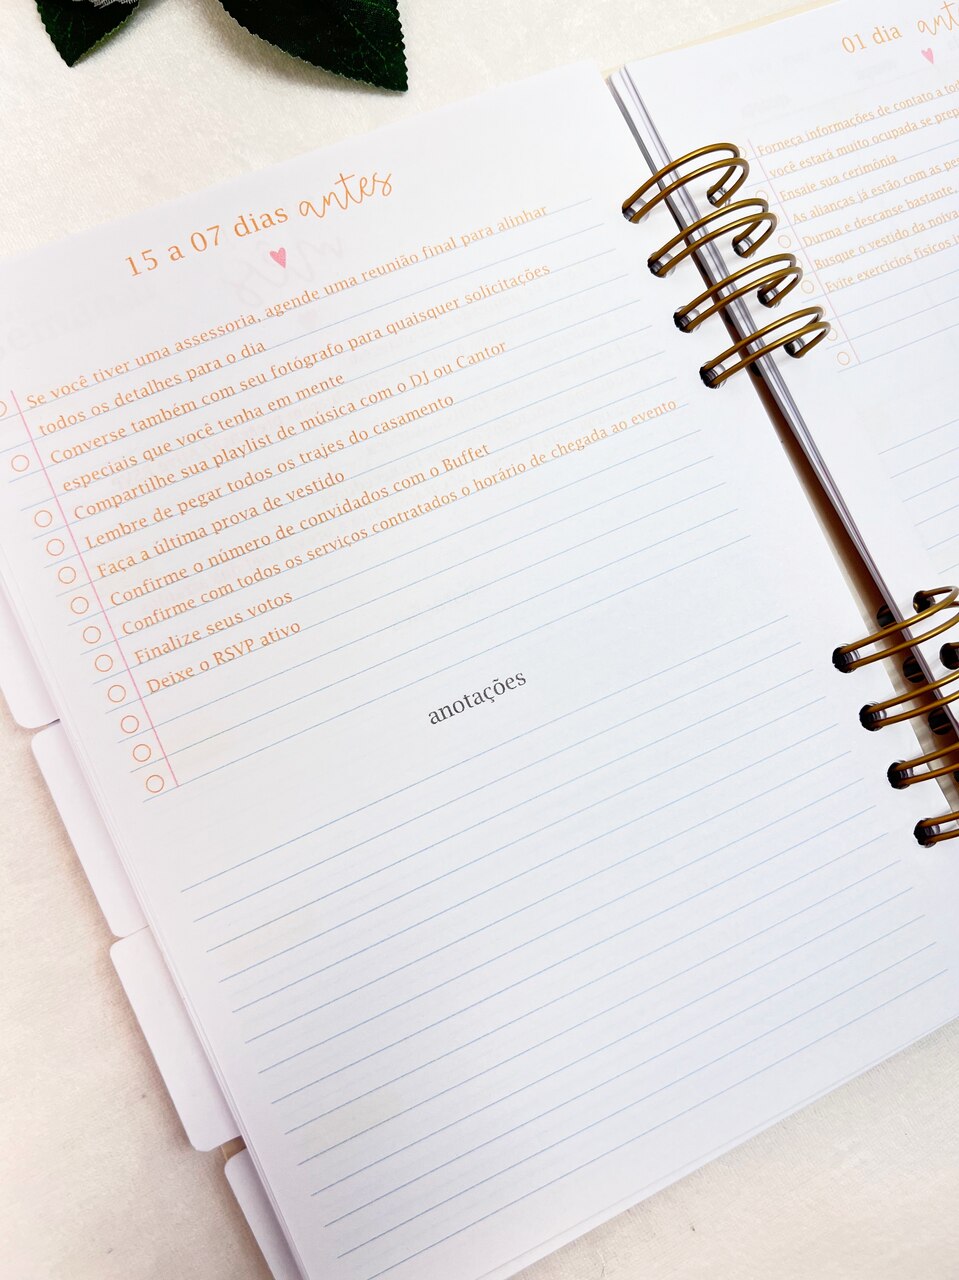 15 a 07 dias antes
Se você tiver uma assessoria, agende uma reunião final para alinhar
todos os detalhes para o dia
Converse também com seu fotógrafo para quaisquer solicitações
especiais que você tenha em mente
Compartilhe sua playlist de música com o DJ ou Cantor
Lembre de pegar todos os trajes do casamento
Faça a última prova de vestido
Confirme o número de convidados com o Buffet
Confirme com todos os serviços contratados o horário de chegada ao evento
Finalize seus votos
Deixe o RSVP ativo
anotações
01 dia
Forneça informações de contato a
você estará muito ocupada se
Ensaie sua cerimônia
As alianças já estão com as
Durma e descanse bastante,
Busque o vestido da noiva
Evite exercícios físicos